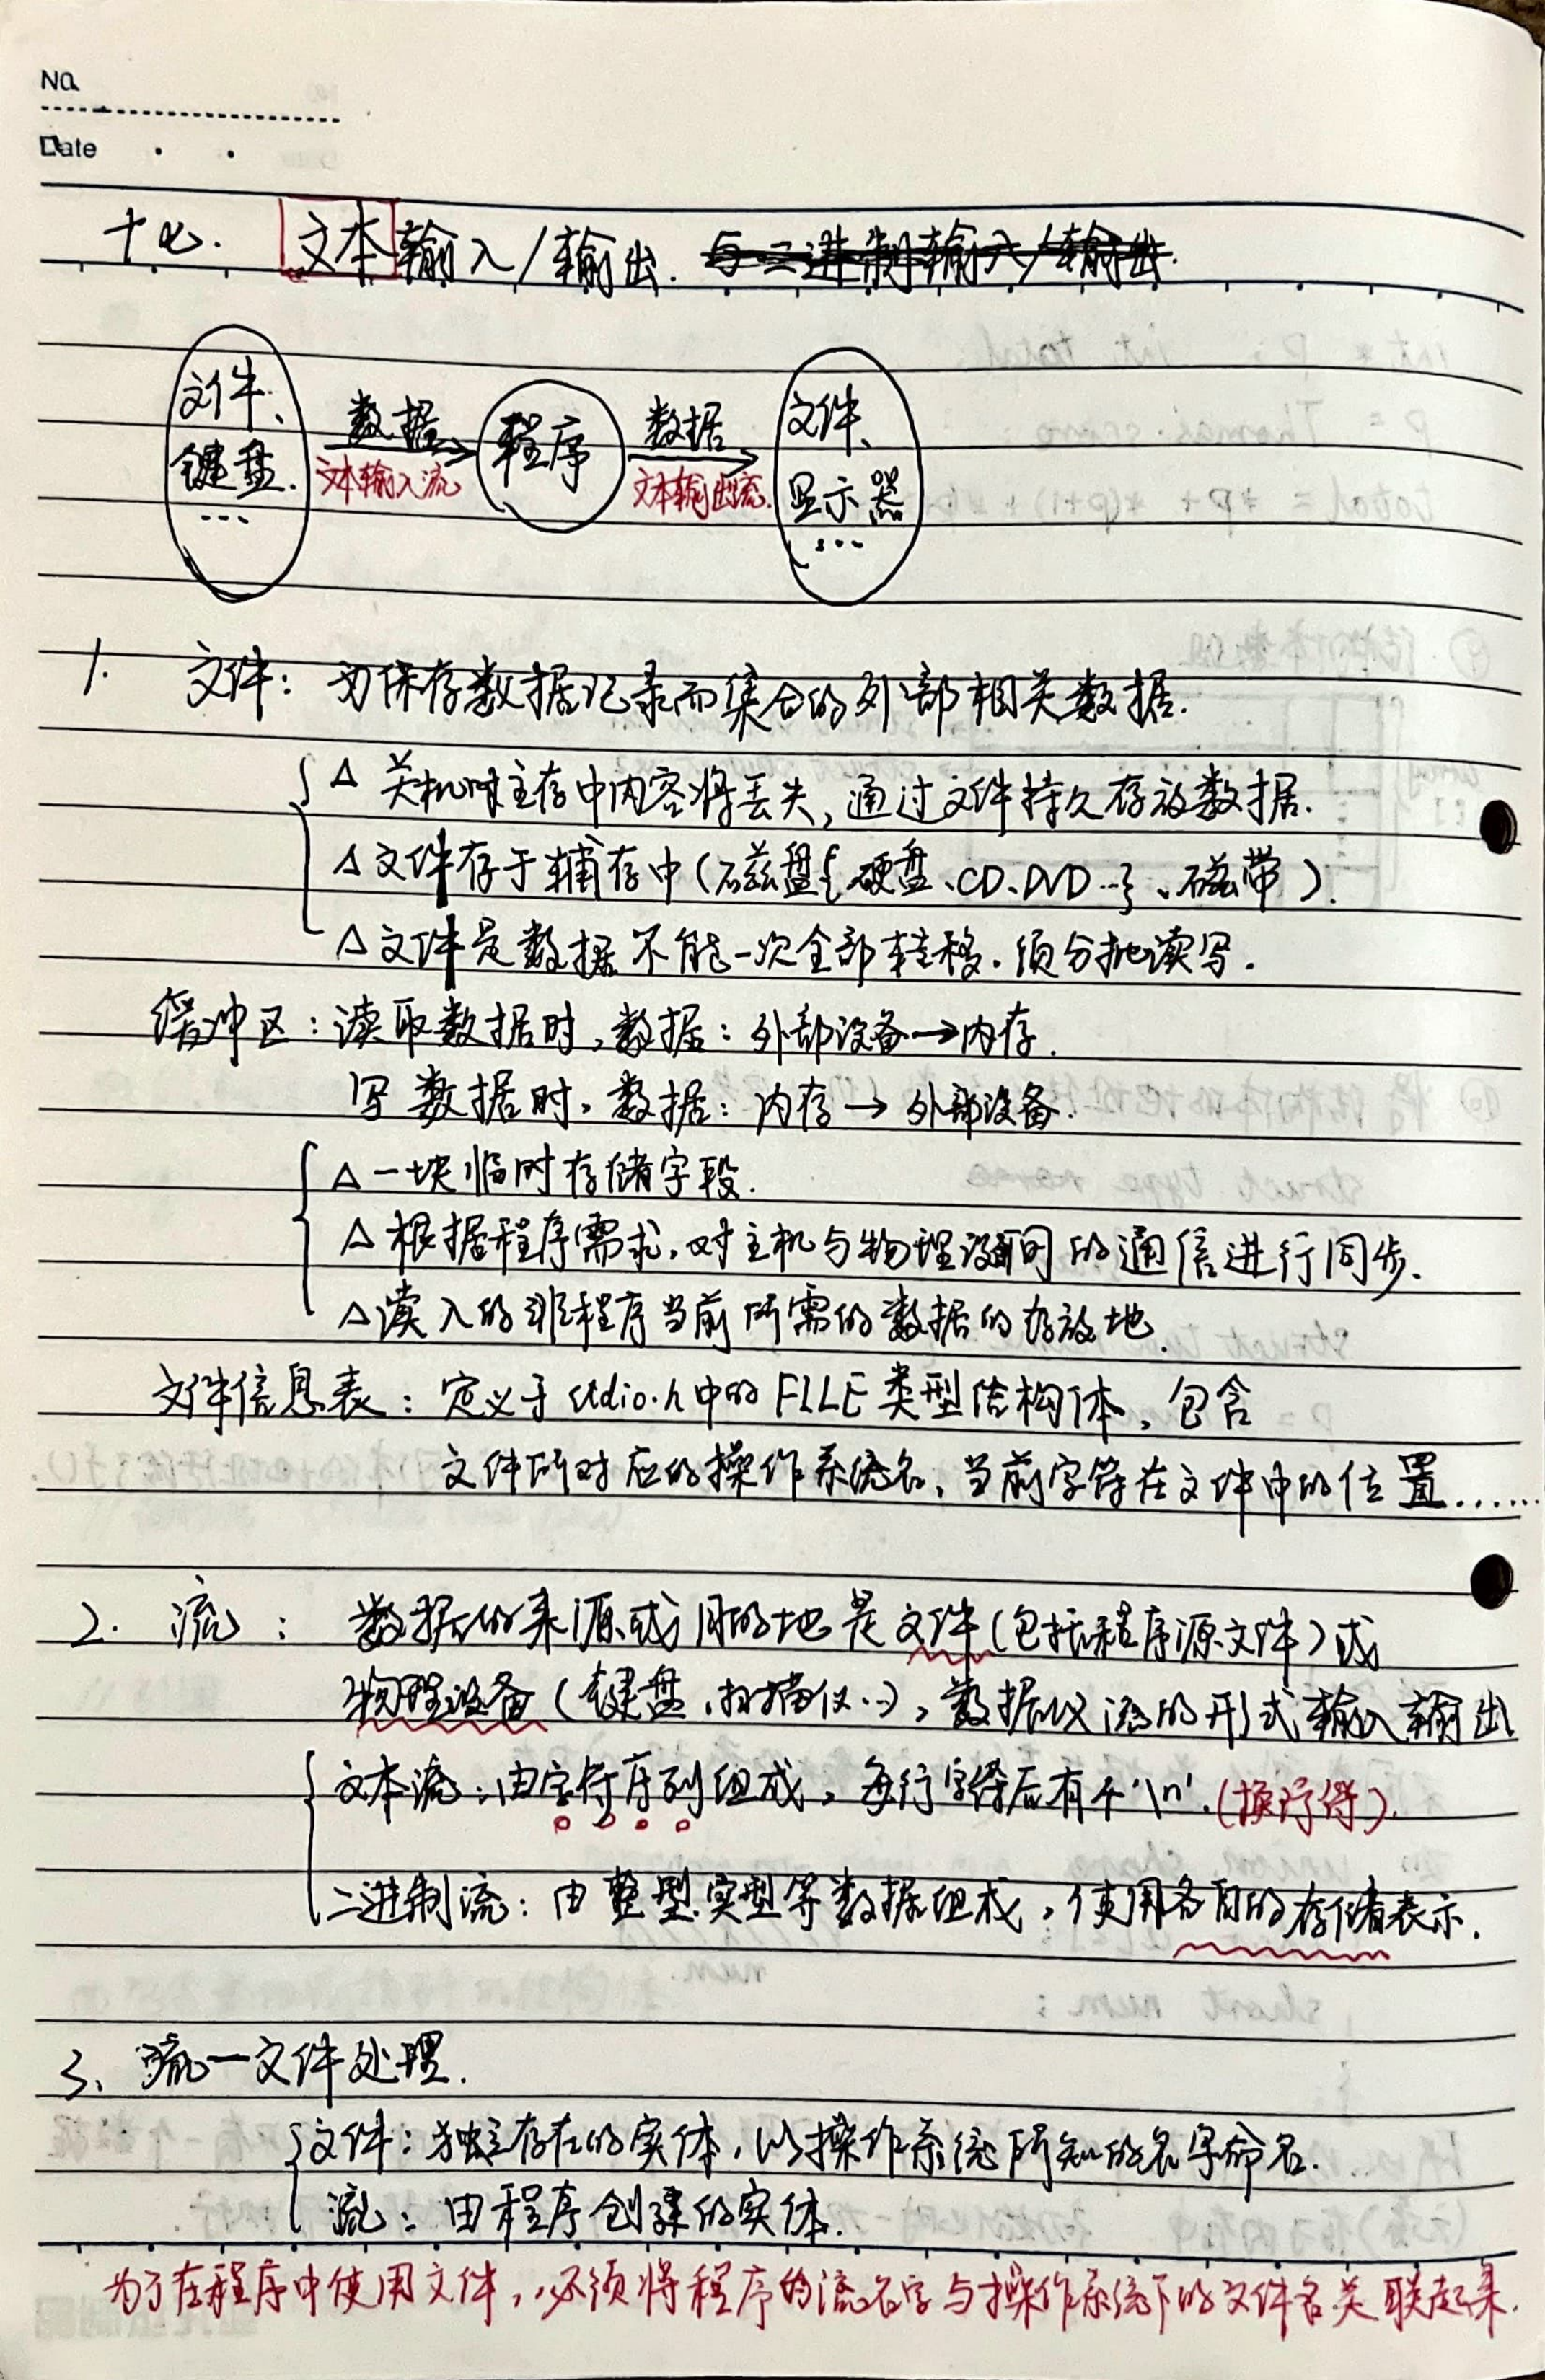 No.
Date
十七. 文本输入/输出. 与二进制输入/输出.
文件、 数据 程序 数据 文件、
键盘. 文本输入流 文本输出流. 显示器
... ...
1. 文件: 为保存数据记录而集合的外部相关数据.
△ 关机时主存中内容将丢失,通过文件持久存放数据.
△ 文件存于辅存中(磁盘{硬盘、CD、DVD…}、磁带).
△ 文件是数据不能一次全部转移.须分批读写.
缓冲区: 读取数据时,数据: 外部设备→内存.
写数据时,数据: 内存→外部设备.
△ 一块临时存储字段.
△ 根据程序需求,对主机与物理设备间的通信进行同步.
△ 读入的非程序当前所需的数据的存放地.
文件信息表: 定义于stdio.h中的FILE类型结构体,包含
文件所对应的操作系统名、当前字符在文件中的位置......
2. 流: 数据的来源或目的地是文件(包括程序源文件)或
物理设备(键盘、扫描仪…),数据以流的形式输入输出
文本流: 由字符序列组成,每行字符后有个'\n'.(换行符).
二进制流: 由整型、实型等数据组成,使用各自的存储表示.
3、流—文件处理.
文件: 独立存在的实体,以操作系统所知的名字命名.
流: 由程序创建的实体.
为了在程序中使用文件,必须将程序的流名字与操作系统下的文件名关联起来.